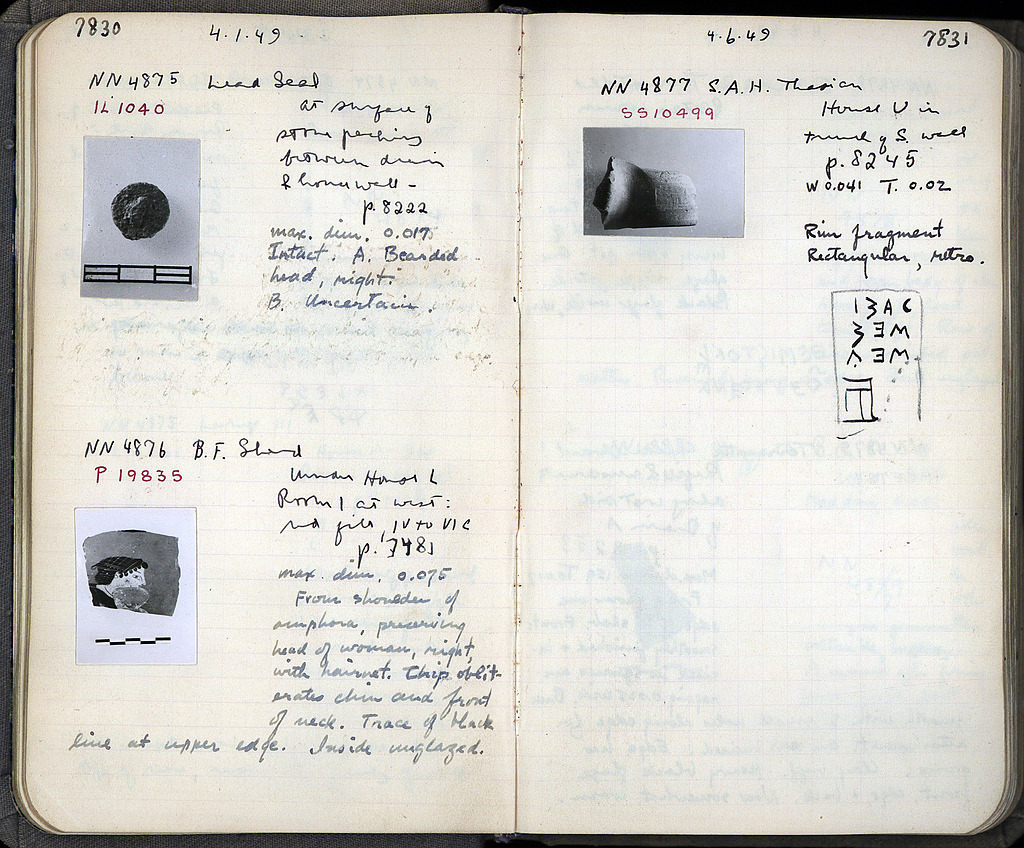 7830
4.1.49
NN 4875 Lead Seal
IL 1040
at surface of
stone packing
between drain
& house wall -
p. 8222
max. dim. 0.017
Intact. A. Bearded
head, right.
B. Uncertain.
NN 4876 B.F. Sherd
P 19835
Under House L
Room 1 at west:
red fill, IV to VI c
p. 7481
max. dim. 0.075
From shoulder of
amphora, preserving
head of woman, right,
with hairnet. Chip oblit-
erates chin and front
of neck. Trace of black
line at upper edge. Inside unglazed.
4.6.49
7831
NN 4877 S.A.H. Thasian
SS10499
House V in
trench of S. wall
p. 8245
W 0.041 T. 0.02
Rim fragment
Rectangular, retro.